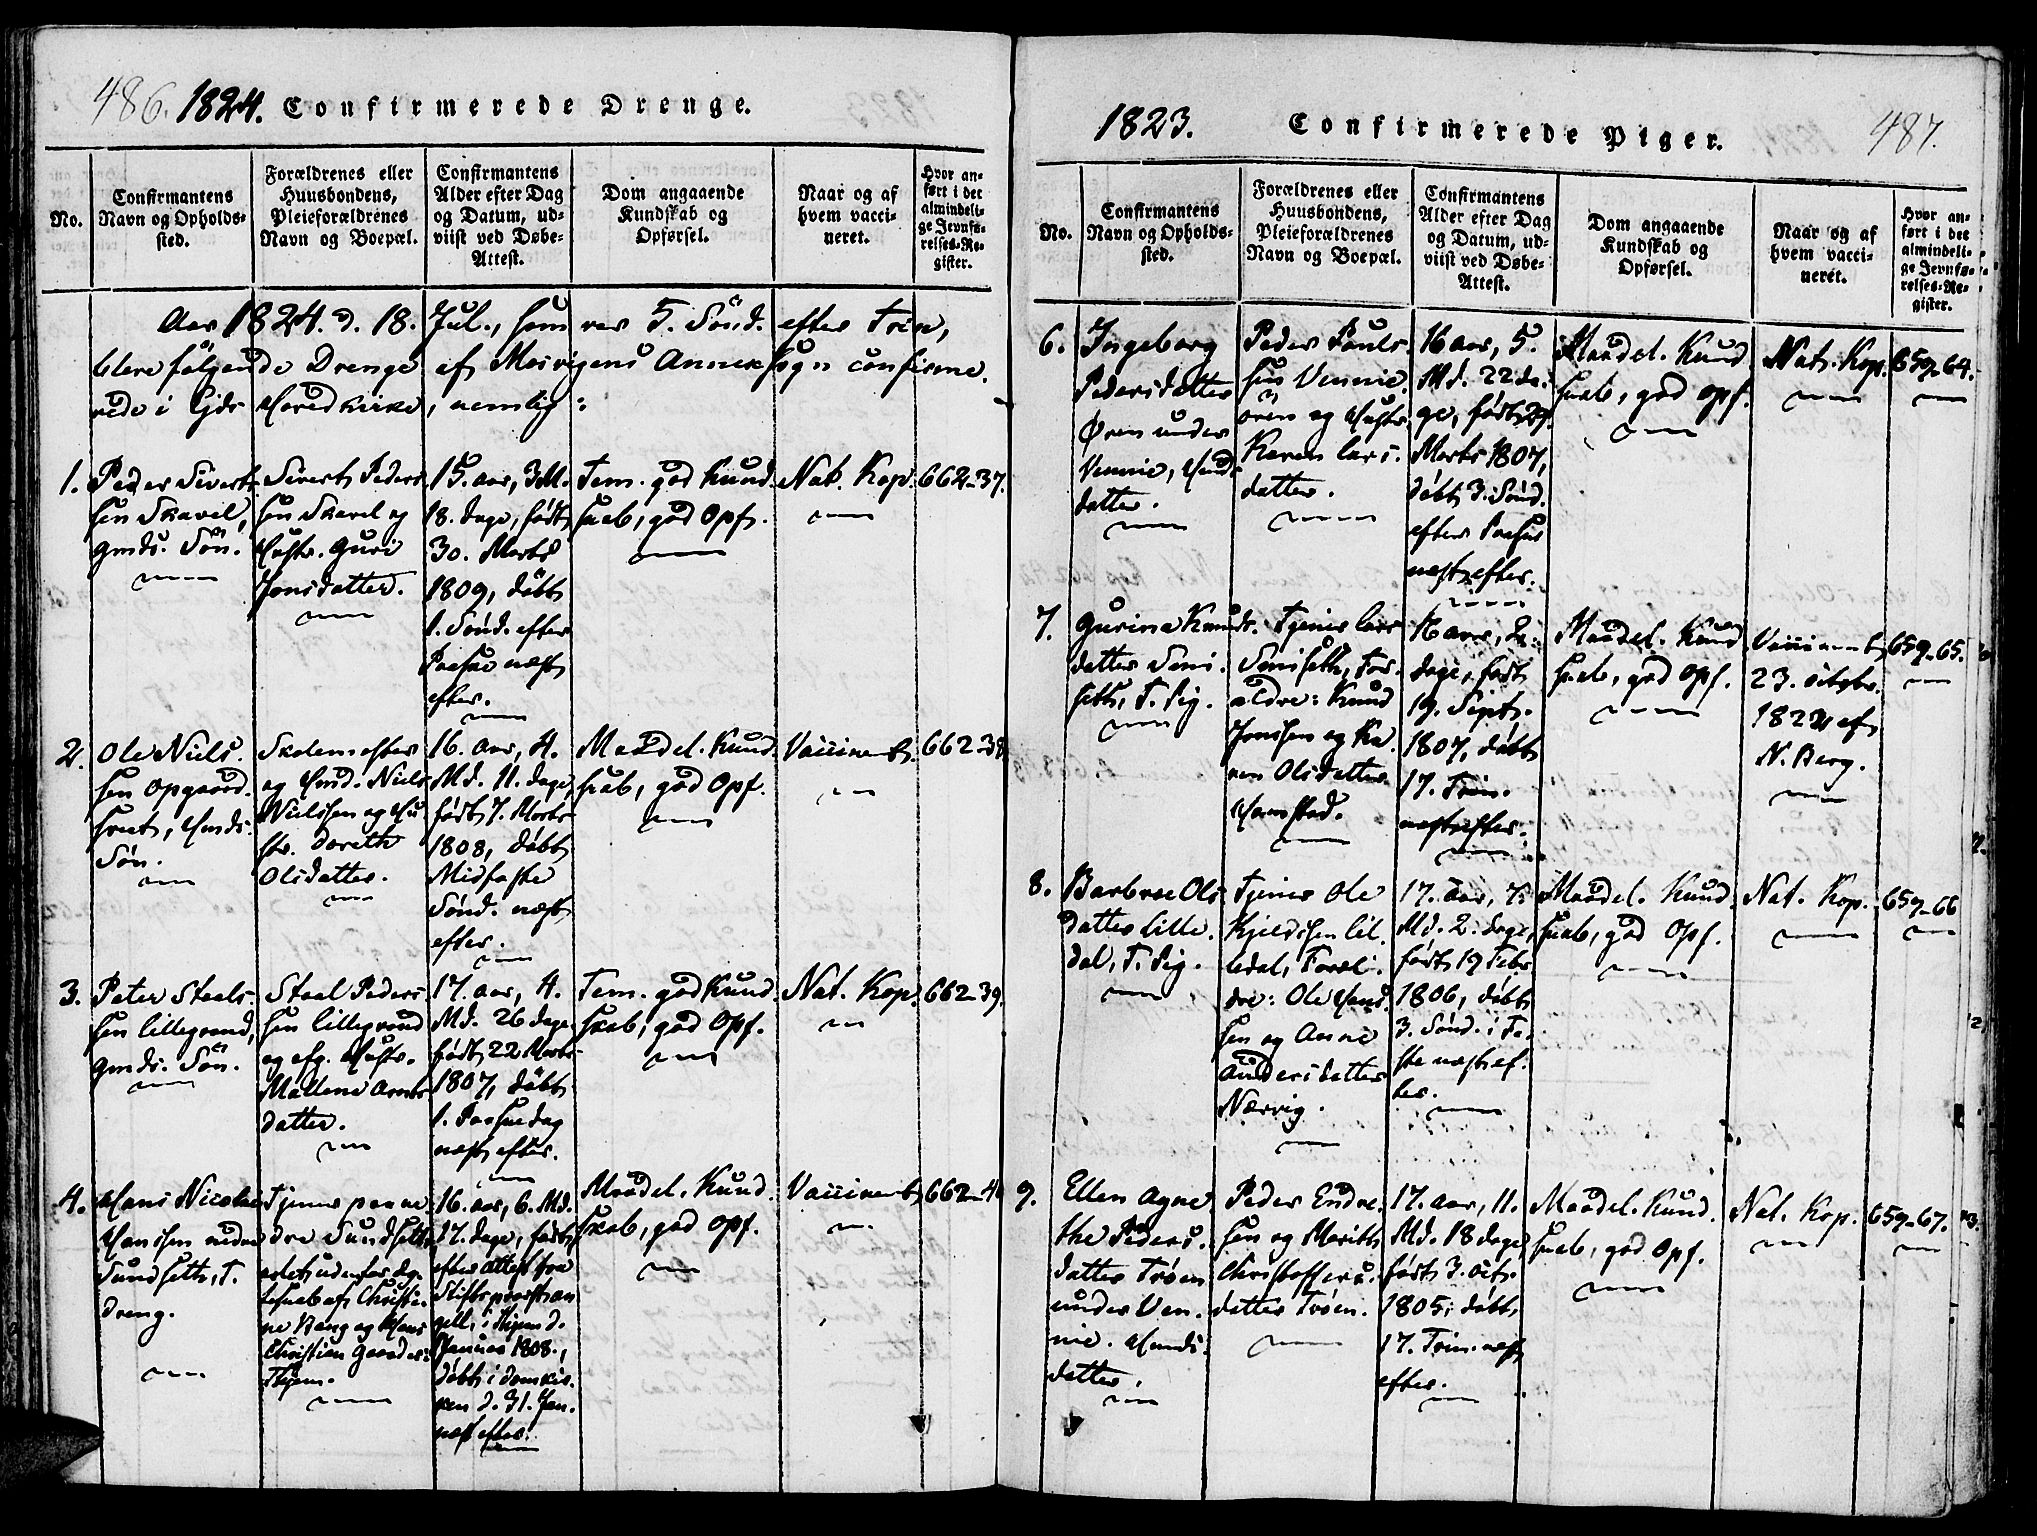 486. 1824. Confirmerede Drenge.
No.
Confirmantens
Navn og Opholds-
sted.
Forældrenes eller
Huusbondens,
Pleieforældrenes
Navn og Boepæl.
Confirmantens
Alder efter Dag
og Datum, ud-
viist ved Døbe-
Attest.
Dom angaaende
Kundskab og
Opførsel.
Naar og af
hvem vacci-
neret.
Hvor an-
ført i det
almindeli-
ge Jevnfø-
relses-Re-
gister.
Aar 1824. d. 18. Jul., som var 5. Sönd. efter Trin,
blev følgende Drenge af Mosvigens Annexsogn confirme-
rede i Hovedkirke, nemlig:
1.
Peder Sivert-
sen Skavel,
gmds. Sön.
Sivert Peder-
sen Skavel og
Hustr. Guri
Jonsdatter.
15. aar, 3 M.
18. dage, født
30. Marts
1809, döbt
1. Sönd. efter
Paaske næst
efter.
Tem. god Kund-
skab, god Opf.
Nat. Kop.
662-37.
2.
Ole Niels-
sen Opgaard-
, Hmds.
Sön.
Skolemester
og Hmd. Niels
Nielssen og Hu-
str. Dorethe
Olsdatter.
16. aar, 4.
Md. 11. dage,
født 7. Marts
1808, döbt
Midfaste
Sönd. næst
efter.
Maadel. Kund-
skab, god Opf.
Vaccineret.
662-38
3.
Peter Staals-
sen Lillegrand,
gmds. Sön.
Staal Peders-
sen Lillegrand
og afg. Hustr.
Mallena Arnts-
datter.
17. aar, 4.
Md. 26 dage
født 22 Marts
1807, döbt
1. Paaskedag
næst efter.
Tem. god Kund-
skab, god Opf.
Nat. Kop.
662-39.
4.
Hans Nicolai
Hanssen nedre
Sundseth, T.
dreng.
Tjener paa ne-
dre Sundseth,
avlet udenfor Æg-
teskab af Christi-
ne Bang og Hans
Christian Gaarder
Thjem.
16. aar, 6. Md.
17. dage, født
efter Attest fra
Stiftsprovst
i Thjem d.
Januar 1808,
döbt i Domkir-
ken d. 31. Jan.
næst efter.
Maadel. Kund-
skab, god Opf.
Vaccineret
662-40
1823. Confirmerede Piger. 487.
No.
Confirmantens
Navn og Opholds-
sted.
Forældrenes eller
Huusbondens,
Pleieforældrenes
Navn og Boepæl.
Confirmantens
Alder efter Dag
og Datum, ud-
viist ved Døbe-
Attest.
Dom angaaende
Kundskab og
Opførsel.
Naar og af
hvem vacci-
neret.
Hvor an-
ført i det
almindeli-
ge Jevnfø-
relses-Re-
gister.
6.
Ingeborg
Pedersdatter
Øren under
Vennie, Hmds
datter.
Peder Pauls-
sen Vennie-
ören og Hustr.
Karen Lars-
datter.
16 aar, 5.
Md. 22 da-
ge, født 29.
Marts 1807,
döbt 3. Sönd.
efter Paaske
næst efter.
Maadel. Kund-
skab, god Opf.
Nat. Kop.
659-64.
7.
Gurina Knuds-
datter Semi-
seth, T. Pig.
Tjener Lars
Semiseth, For-
ældre: Knud
Jonssen og Ka-
ren Olsdatter
Hamstad.
16 aar, 2.
dage, født
19. Sept.
1807, döbt
17. Trin.
næst efter.
Maadel. Kund-
skab, god Opf.
Vaccineret
23. Octobr.
1822 af
N. Berg.
659-65.
8.
Barbroe Ols-
datter Lille-
dal, T. Pig.
Tjener Ole
Kjeldssen Lil-
ledal, Foræl-
dre: Ole
sen og Anne
Andersdatter
Nærvig.
17. aar, 7.
Md. 2. dage,
født 19 Febr
1806, döbt
3. Sönd. i Fa-
ste næst ef-
ter.
Maadel. Kund-
skab, god Opf.
Nat. Kop.
659-66
9.
Ellen Agne-
the Peders-
datter Tröen
under Ven-
nie. Hmds.
datter.
Peder Endre-
sen og Marith
Christoffers-
datter Tröen.
17. aar, 11.
Md. 18 dage
født 3. Oct.
1805, döbt
17. Trin. næst
efter.
Maadel. Kund-
skab, god Opf.
Nat. Kop.
659-67.